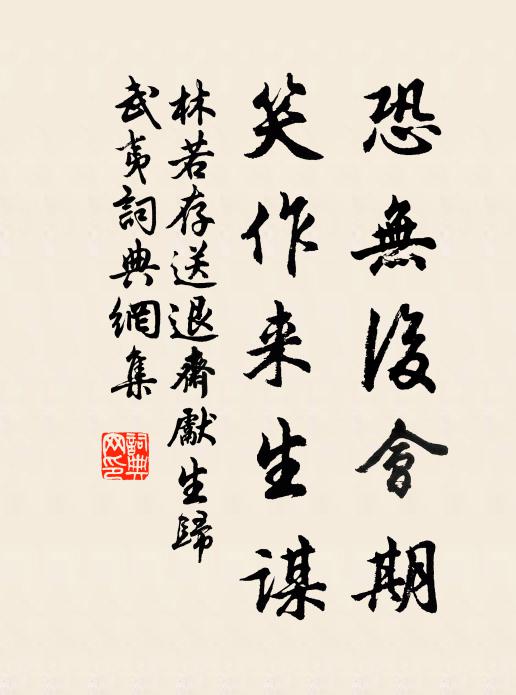 恐無後會期
笑作来生謀
林若存送退齋獻生歸
武夷詞典網集
詞典网印